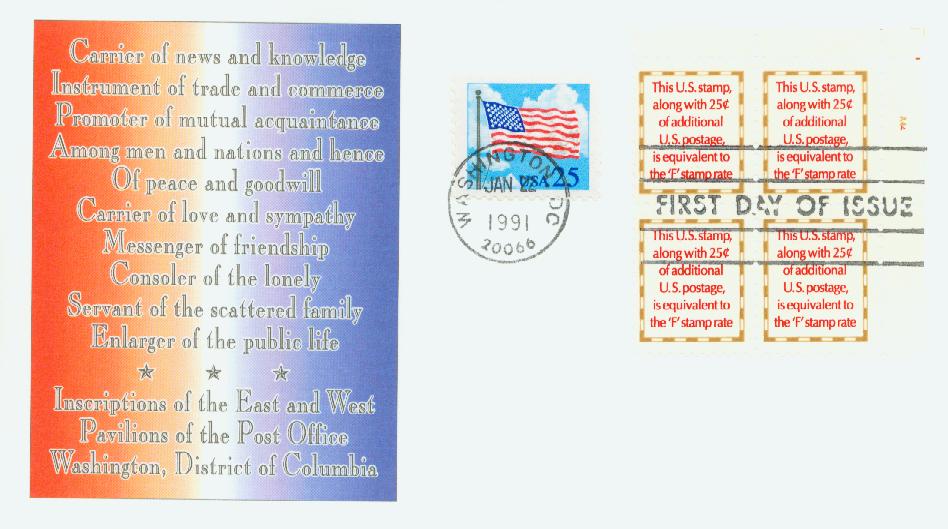 Carrier of news and knowledge
Instrument of trade and commerce
Promoter of mutual acquaintance
Among men and nations and hence
Of peace and goodwill
Carrier of love and sympathy
Messenger of friendship
Consoler of the lonely
Servant of the scattered family
Enlarger of the public life
Inscriptions of the East and West
Pavilions of the Post Office
Washington, District of Columbia
USA 25
WASHINGTON DC
JAN 22
1991
20066
This U.S. stamp,
along with 25¢
of additional
U.S. postage,
is equivalent to
the 'F' stamp rate
This U.S. stamp,
along with 25¢
of additional
U.S. postage,
is equivalent to
the 'F' stamp rate
FIRST DAY OF ISSUE
This U.S. stamp,
along with 25¢
of additional
U.S. postage,
is equivalent to
the 'F' stamp rate
This U.S. stamp,
along with 25¢
of additional
U.S. postage,
is equivalent to
the 'F' stamp rate